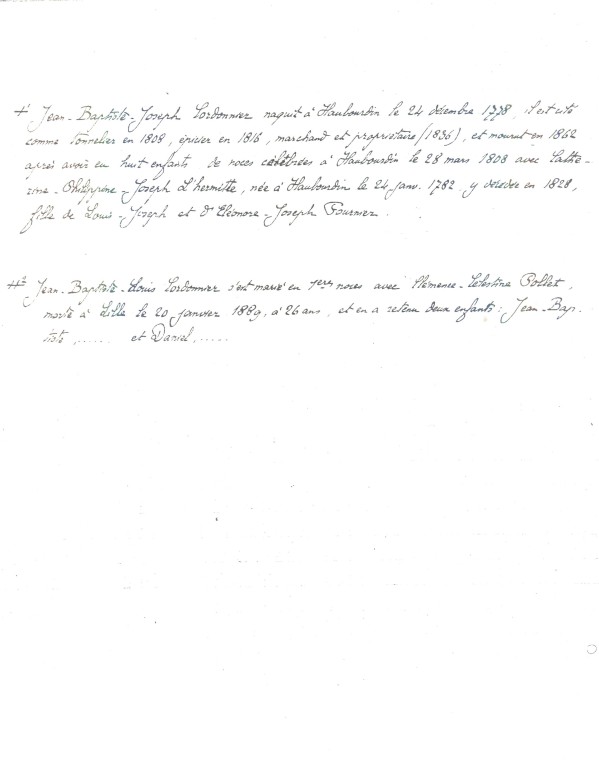 +¹ Jean-Baptiste-Joseph Cordonnier naquit à Haubourdin le 24 décembre 1778, il est cité
comme tonnelier en 1808, épicier en 1816, marchand et propriétaire (1836), et mourut en 1862
après avoir eu huit enfants de noces célébrées à Haubourdin le 28 mars 1808 avec Cathe-
rine-Philippine-Joseph L'hermitte, née à Haubourdin le 24 janv. 1782, y décédée en 1828,
fille de Louis-Joseph et d'Eléonore-Joseph Fournier.
+² Jean-Baptiste-Louis Cordonnier s'est marié en 1ères noces avec Clémence-Célestine Pollet,
morte à Lille le 20 janvier 1889, à 26 ans, et en a retenu deux enfants: Jean-Bap-
tiste, ...... et Daniel, .....